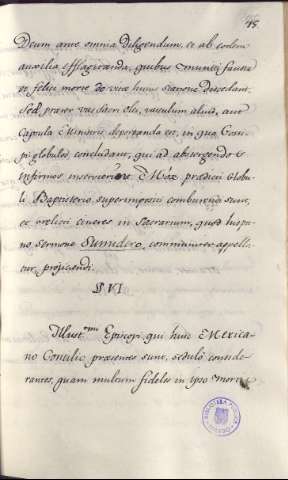 Deum ante omnia diligendum, et ab eodem
auxilia efflagitanda, quibus muniti fauste
et felici morte de vitæ huius statione discedant.
Sed præter vas sacri olei, vasculum aliud, aut
Capsula Ministris deportanda est, in qua Gossi-
pi globulos concludant, qui ad abstergendos
infirmos inservient. Mox prædicti Globu-
li, Baptisterio superimpositi comburendi sunt,
et eorum cineres in Sacrarium, quod hispa-
no sermone Sumidero, communiter appella-
tur, projiciendi.
§ VI
Illust.mi Episcopi, qui huic Mexica-
no Concilio præsentes sunt, sedulò conside-
rantes, quam multum fideles in ipso mortis